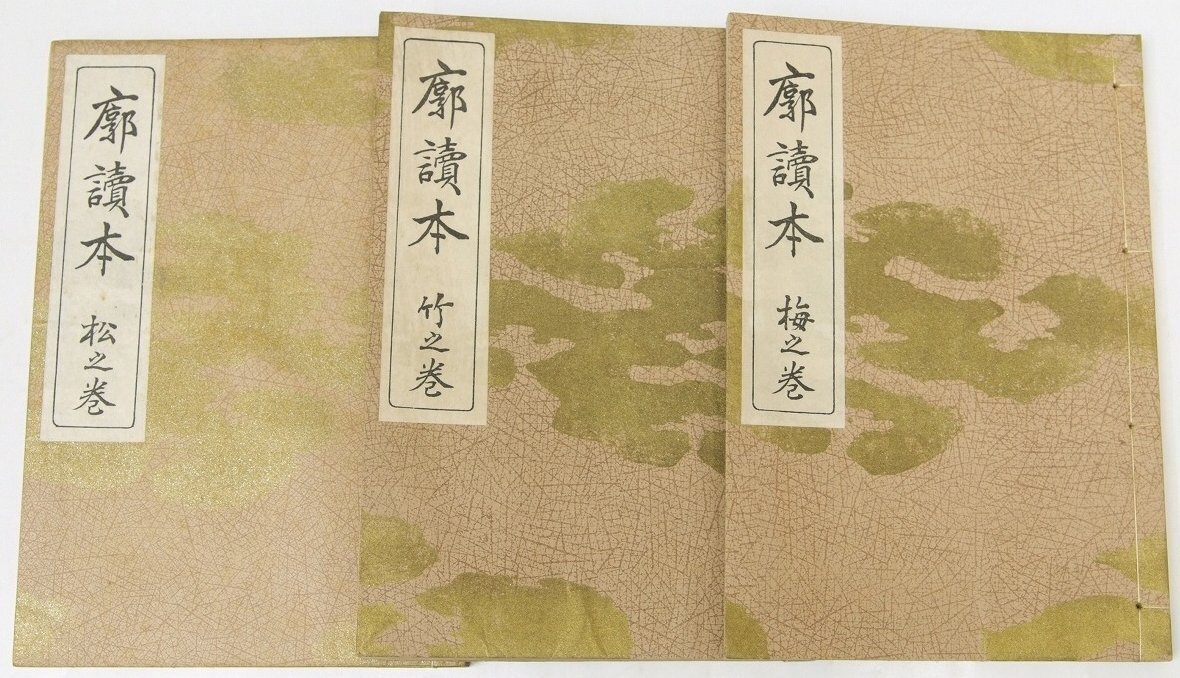 廓讀本 松之巻
廓讀本 竹之巻
廓讀本 梅之巻